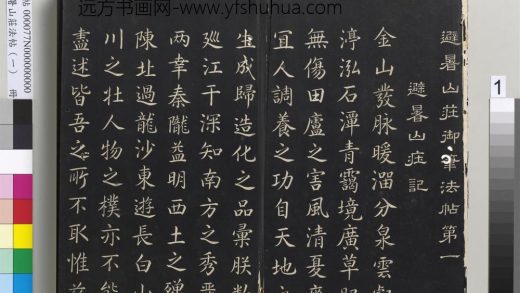 远方书画网-www.yfshuhua.com
避暑山莊御筆法帖第一
避暑山莊記
金山發脉暖溜分泉雲壑
渟泓石潭青靄境廣草肥
無傷田廬之害風清夏
宜人調養之功自天地之
生成歸造化之品彙朕數
巡江干深知南方之秀
兩幸秦隴益明西土之殫
陳北過龍沙東遊長白山
川之壯人物之樸亦不能
盡述皆吾之所不取惟茲
帖 000077N00000000
暑山莊法帖(一) 冊
1